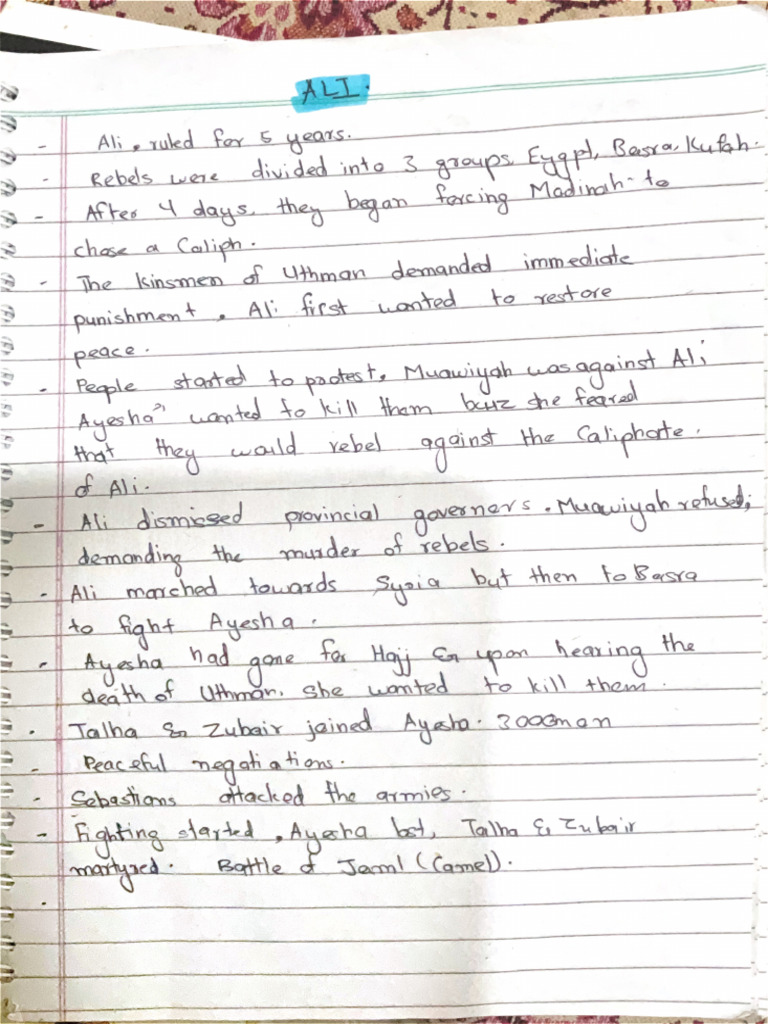 ALI.
- Ali, ruled for 5 years.
- Rebels were divided into 3 groups, Eygpt, Basra, Kufah.
- After 4 days, they began forcing Madinah to
chose a Caliph.
- The kinsmen of Uthman demanded immediate
punishment. Ali first wanted to restore
peace.
- People started to protest, Muawiyah was against Ali
Ayesha wanted to kill them bcuz she feared
that they would rebel against the Caliphate.
of Ali.
- Ali dismissed provincial governers. Muawiyah refused,
demanding the murder of rebels.
- Ali marched towards Syria but then to Basra
to fight Ayesha.
- Ayesha had gone for Hajj & upon hearing the
death of Uthman, she wanted to kill them.
- Talha & Zubair joined Ayesha. 3000 man
- Peaceful negotiations.
- Sebastians attacked the armies.
- Fighting started, Ayesha lost, Talha & Zubair
martyred. Battle of Jaml (Camel).